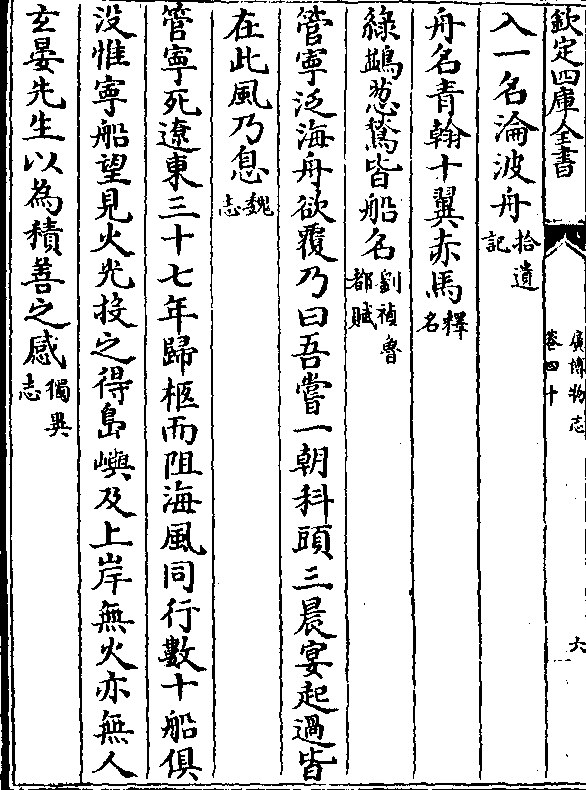 欽定四庫全書
廣博物志
卷四十
六
入一名淪波舟拾遺記
舟名青翰十翼赤馬釋名
綠鷁蔥鶖皆船名劉禎魯都賦
管寧泛海舟欲覆乃曰吾嘗一朝科頭三晨宴起過皆
在此風乃息魏志
管寧死遼東三十七年歸柩而阻海風同行數十船俱
没惟寧船望見火光投之得島嶼及上岸無火亦無人
玄晏先生以為積善之感獨異志